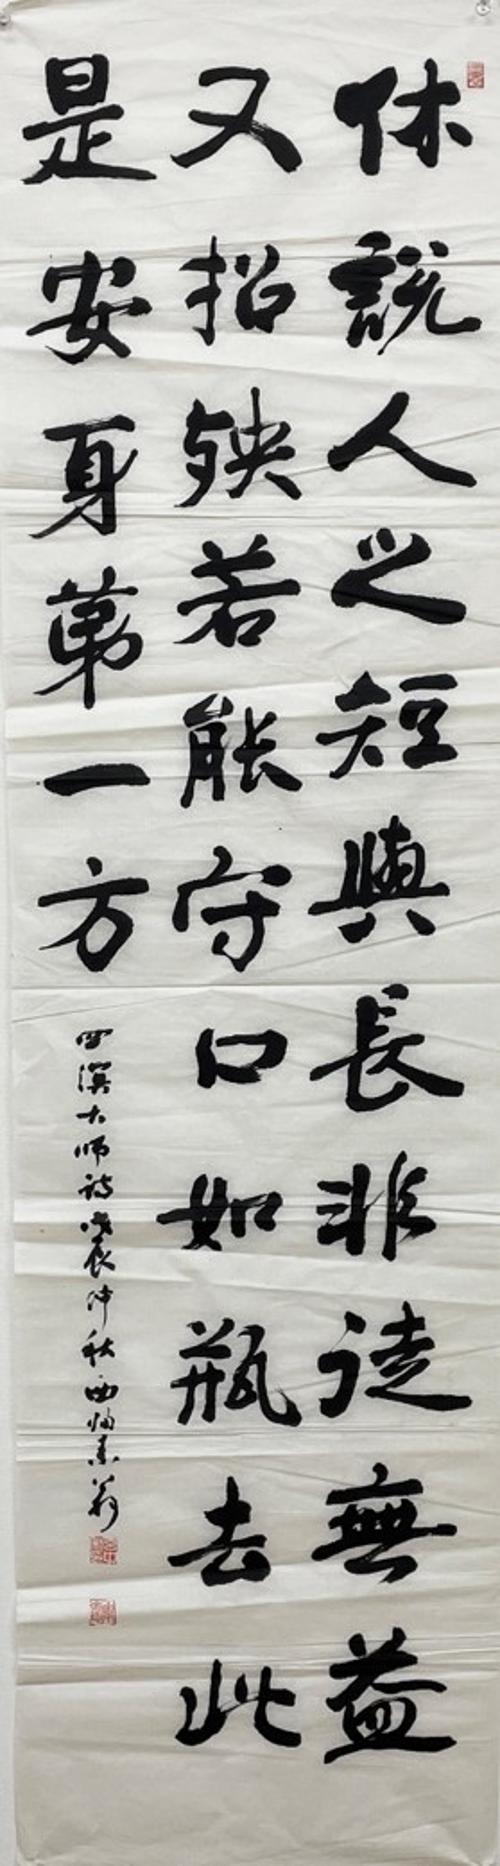 休說人之短與長非徒無益
又招殃若能守口如瓶去此
是安身第一方
大师詩戊辰仲秋